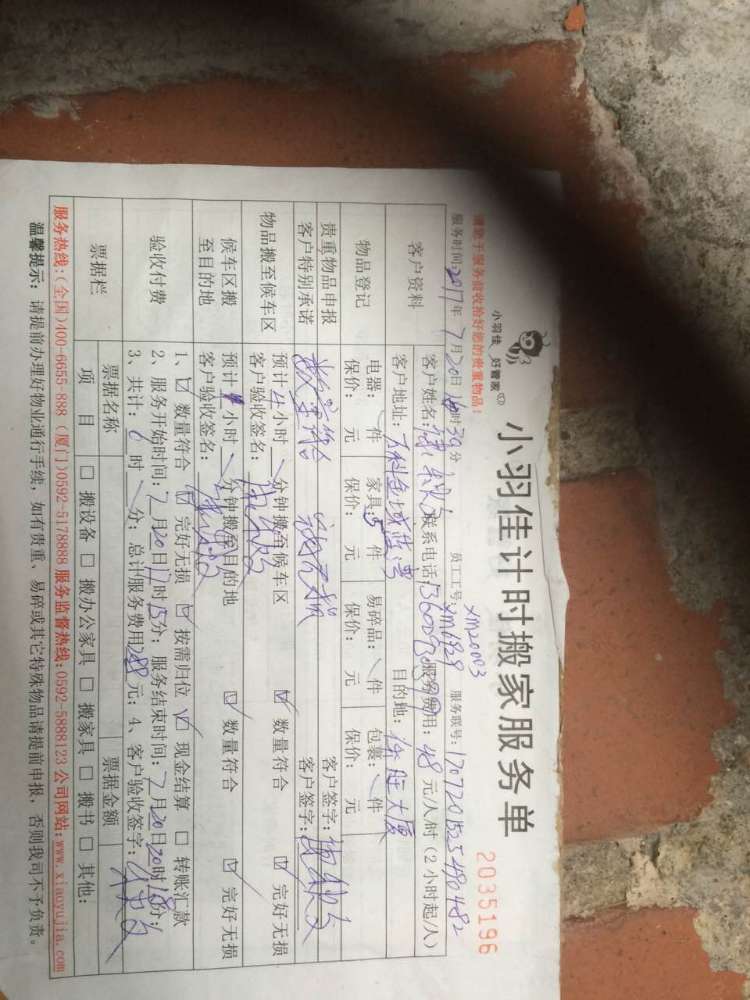 小羽佳 好管家
小羽佳计时搬家服务单
2035196
请您于服务前收拾好您的贵重物品!
XM20003
服务时间:2017年7月20日 时30分 员工工号:XM0929 服务联号:170720152549
客户资料
客户姓名: 联系电话: 服务费用:48元/人/时(2小时起/人)
客户地址: 目的地: 旺大厦
物品登记
电器: 件 家具:5件 易碎品: 件 包裹: 件
保价: 元 保价: 元 保价: 元 保价: 元
贵重物品申报
客户特别承诺
数量符合
客户签字:
客户签字:
物品搬至候车区
预计 小时 分钟搬至候车区 ☑ 数量符合 ☑ 完好无损
客户验收签名:
候车区搬
至目的地
预计 小时 分钟搬至目的地 ☑ 数量符合 ☑ 完好无损
客户验收签名:
验收付费
1、☑ 数量符合 ☑ 完好无损 ☑ 按需归位 ☑ 现金结算 □ 转账汇款
2、服务开始时间:7月20日17时15分;服务结束时间:7月20日20时18分;
3、共计:6时 分;总计服务费用288元;4、客户验收签字:
票据栏
票据名称 票据金额
项 目 □ 搬设备 □ 搬办公家具 □ 搬家具 □ 搬书 □ 其他:
服务热线:(全国)400-6655-888 (厦门)0592-5178888 服务监督热线:0592-5888123 公司网站:www.xiaoyujia.com
温馨提示:请提前办理好物业通行手续,如有贵重、易碎或其它特殊物品请提前申报,否则我司不予负责。